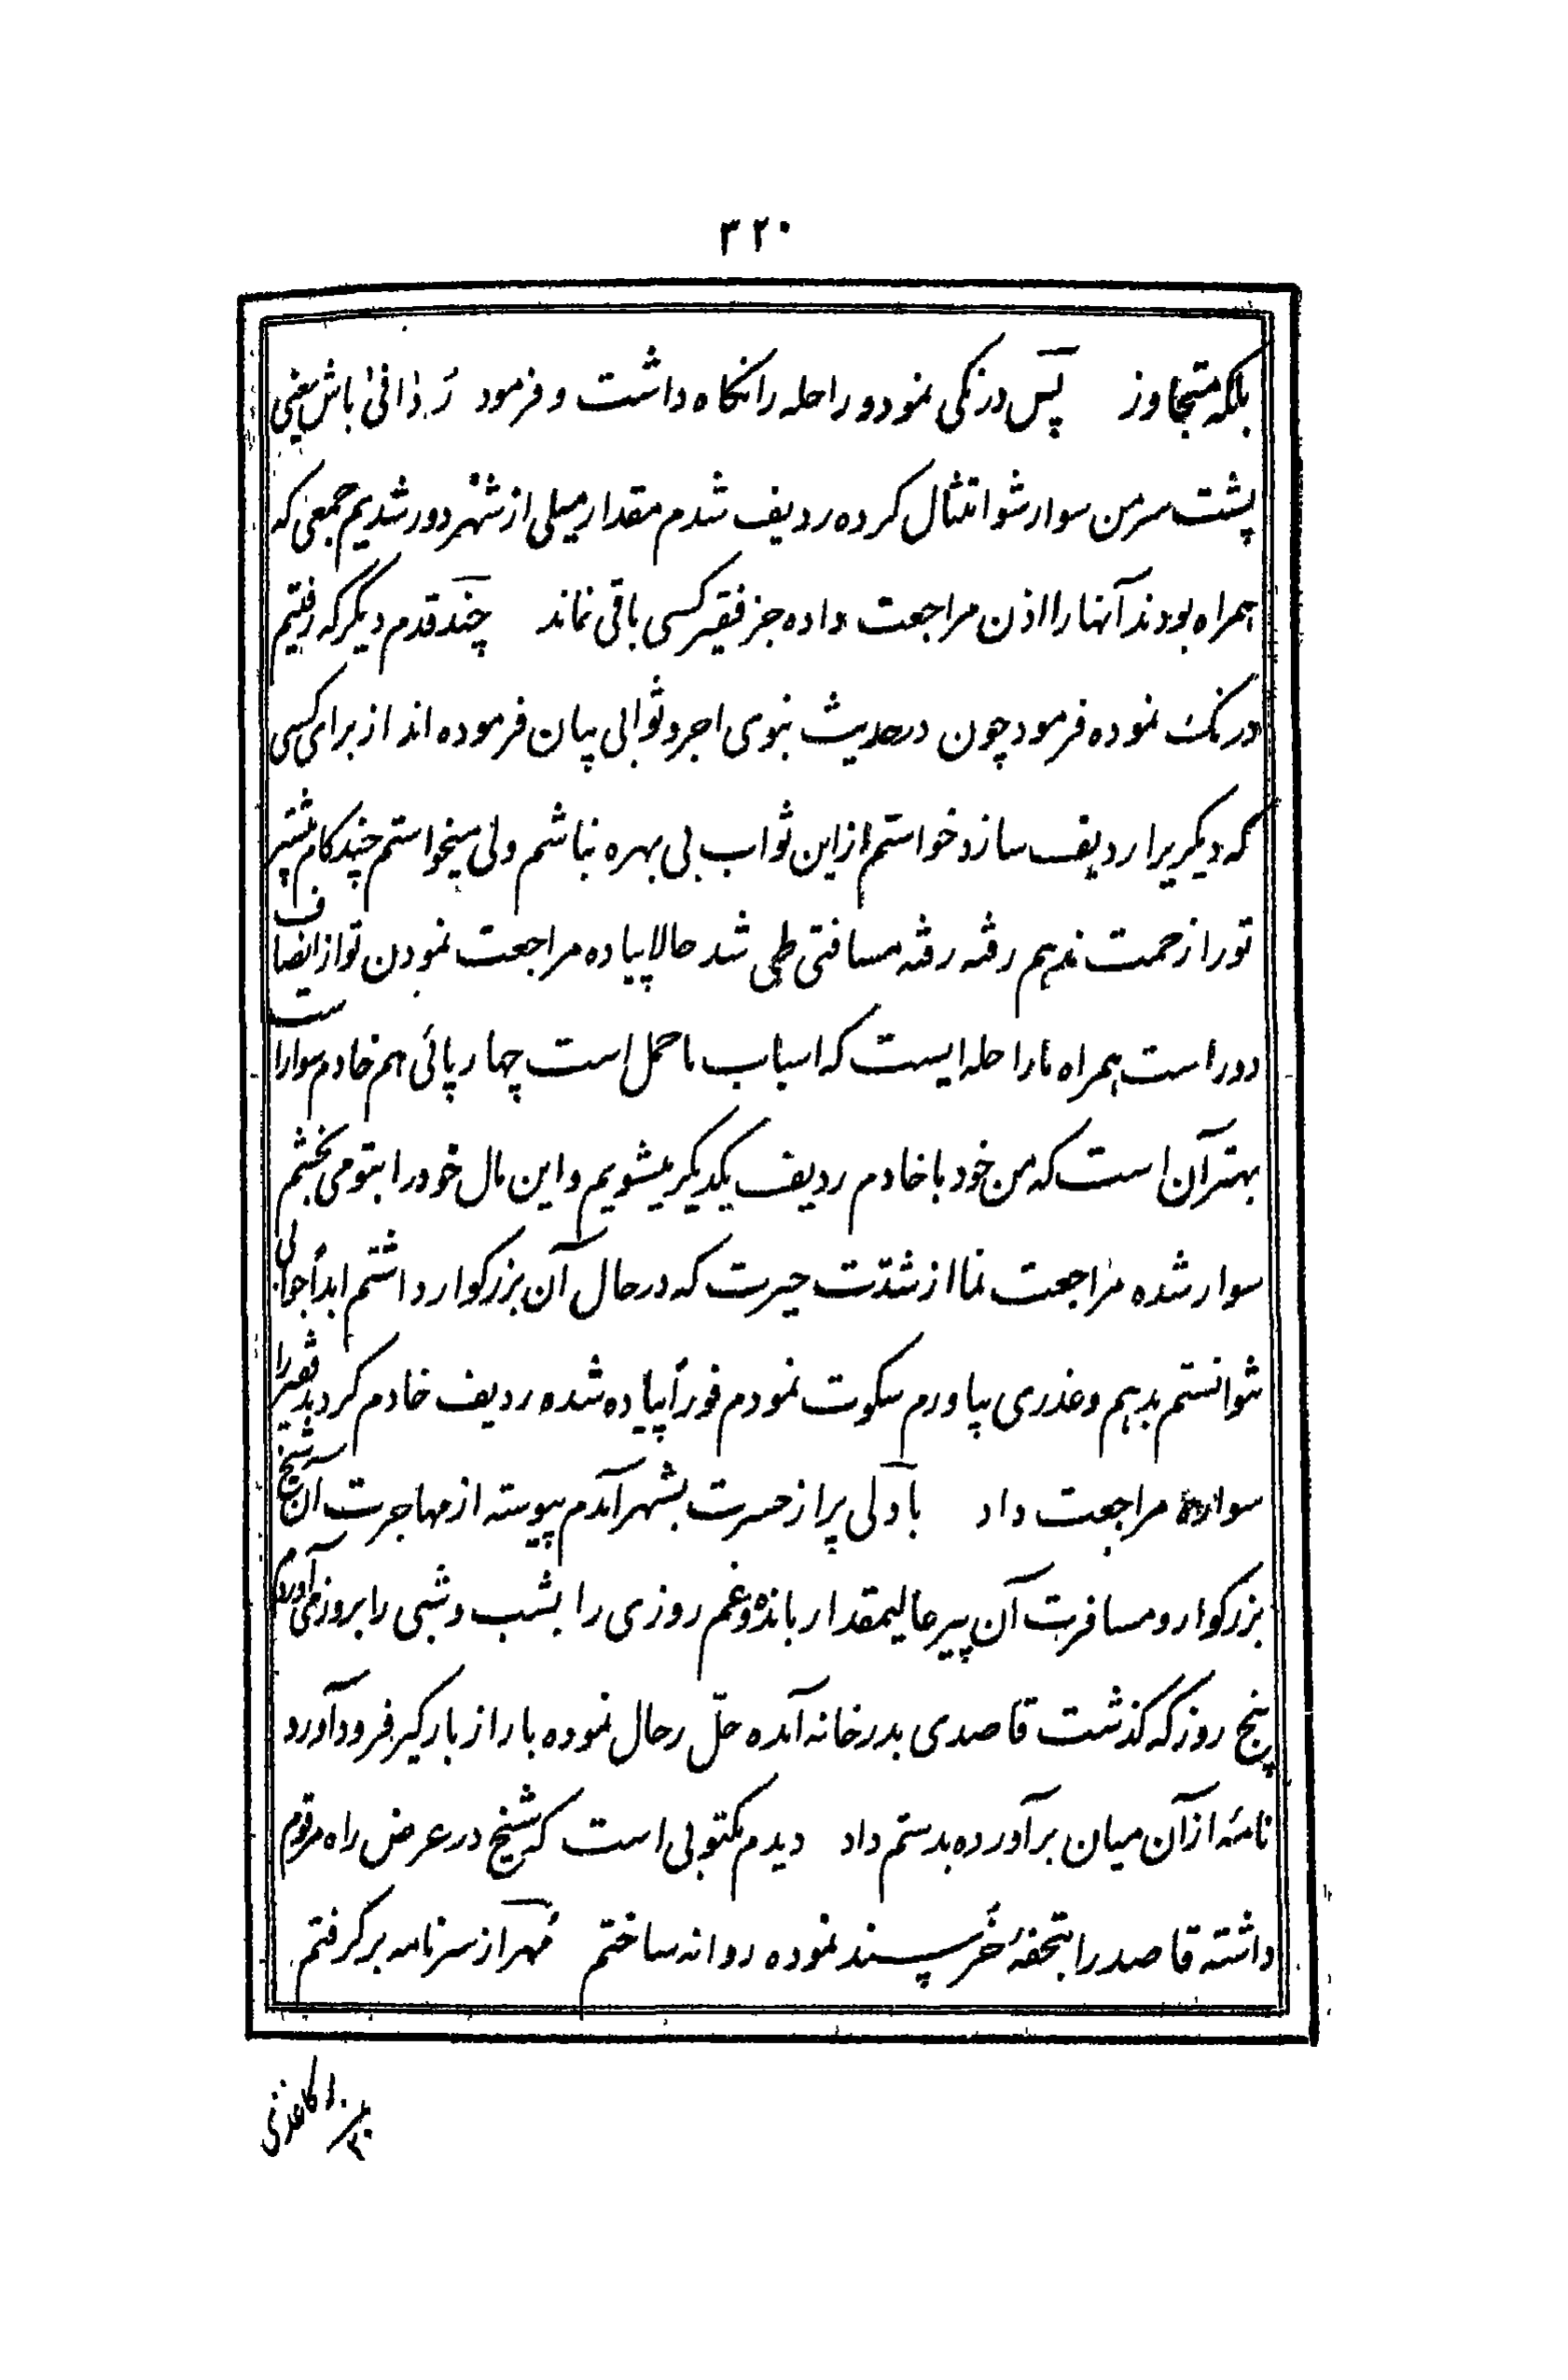 ۳۲۰
بلکه متجاوز پس درنکی نمود و راحله را نکاه داشت و فرمود رَدِافی باش یعنی
پشت سر من سوار شو امتثال کرده ردیف شدم مقدار میلی از شهر دور شدیم جمعی که
همراه بودند آنها را اذن مراجعت داده جز فقیر کسی باقی نماند چند قدم دیگر که رفتیم
درنک نموده فرمود چون در حدیث نبوی اجر و ثوابی بیان فرموده اند از برای کسی
که دیکریرا ردیف سازد خواستم از این ثواب بی بهره نباشم ولی میخواستم چند کام بیشتر
تورا زحمت ندهم رفته رفته مسافتی طی شد حالا پیاده مراجعت نمودن تو از انصاف
دور است همراه ما راحله ایست که اسباب ما حمل است چهارپائی هم خادم سوار است
بهتر آن است که من خود با خادم ردیف یکدیکر میشویم و این مال خود را بتو می بخشم
سوار شده مراجعت نما از شدّت حیرت که در حال آن بزرکوار داشتم ابداً جوابی
نتوانستم بدهم و عذری بیاورم سکوت نمودم فوراً پیاده شده ردیف خادم کردید فقیر را
سواره مراجعت داد با دلی پر از حسرت بشهر آمدم پیوسته از مهاجرت آن شیخ
بزرکوار و مسافرت آن پیر عالیمقدار بانده و غم روزی را بشب و شبی را بروز می آوردم
پنج روز که کذشت قاصدی بدر خانه آمده حلّ رحال نموده بار از بارکیر فرود آورد
نامهٔ از آن میان برآورده بدستم داد دیدم مکتوبی است که شیخ در عرض راه مرقوم
داشته قاصد را بتحفهٔ خرسند نموده روانه ساختم مُهر از سر نامه بر کرفتم
کاغذی